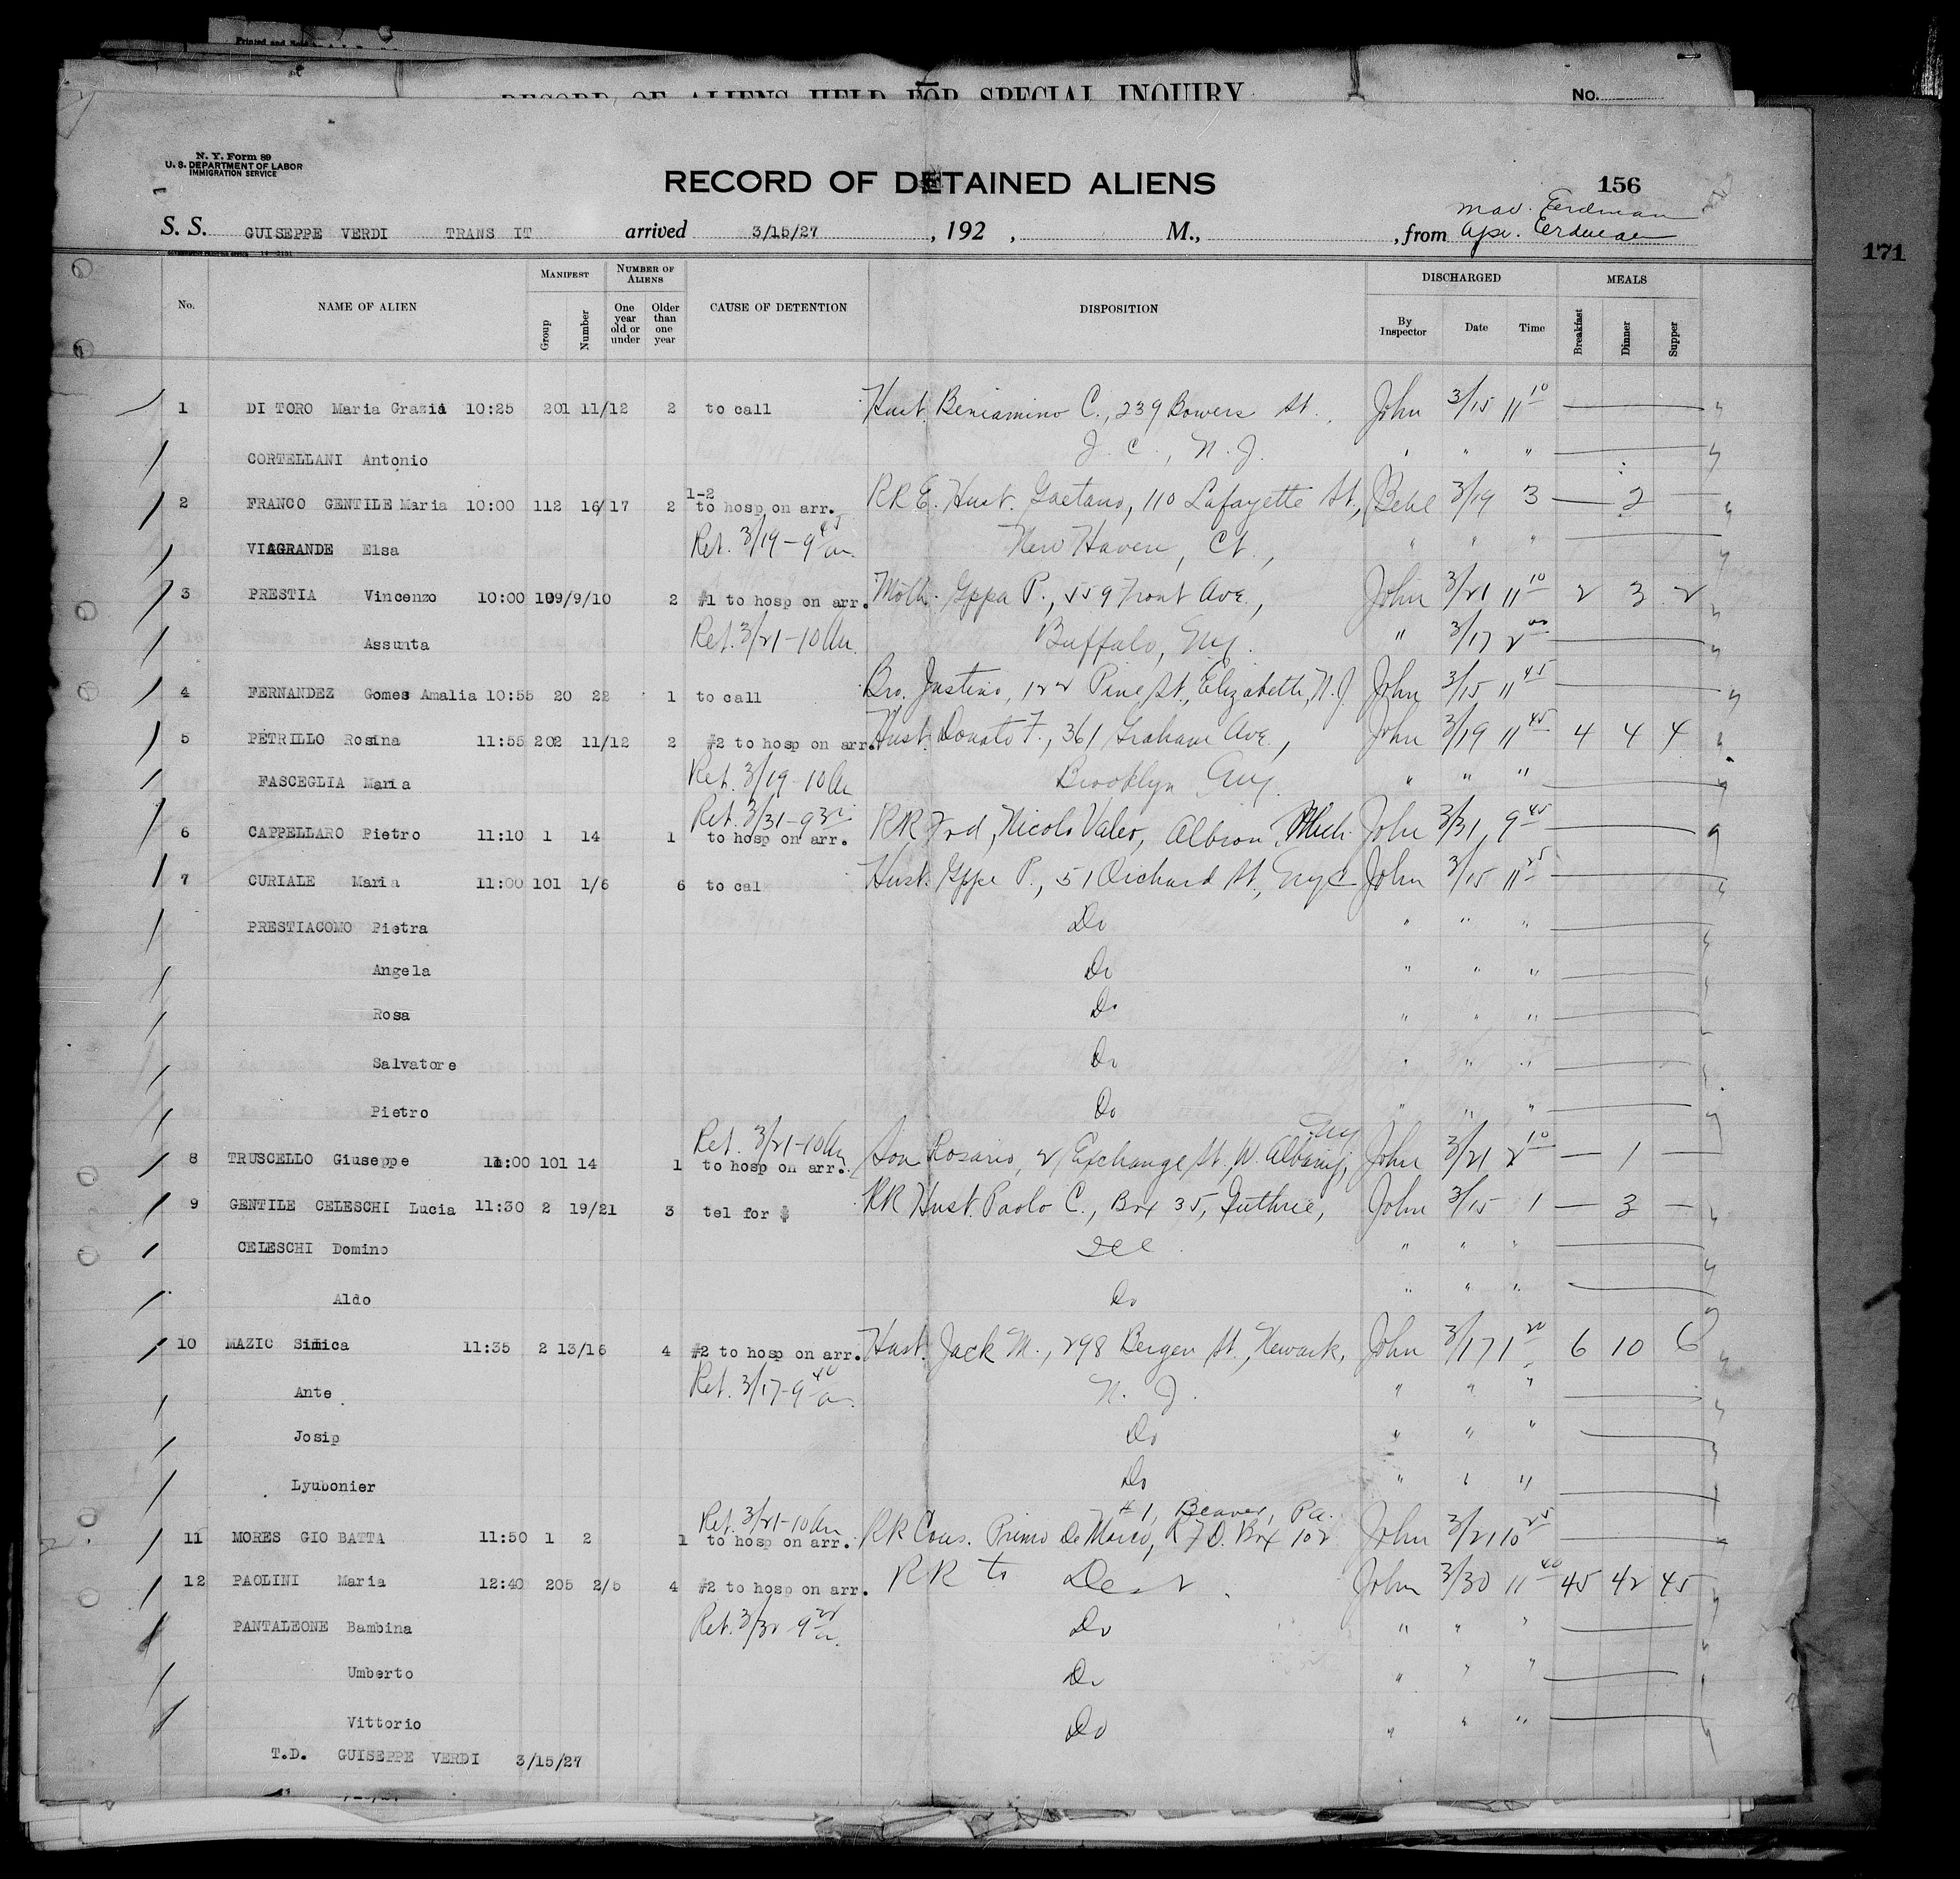 RECORD OF ALIENS HELD FOR SPECIAL INQUIRY
No.
N. Y. Form 89
U. S. DEPARTMENT OF LABOR
IMMIGRATION SERVICE
RECORD OF DETAINED ALIENS
156
171
S. S. GUISEPPE VERDI TRANS IT arrived 3/15/27, 192 , M., , from Erdman
No. NAME OF ALIEN MANIFEST Group Number NUMBER OF ALIENS One year old or under Older than one year CAUSE OF DETENTION DISPOSITION DISCHARGED By Inspector Date Time MEALS Breakfast Dinner Supper
1 DI TORO Maria Grazia 10:25 201 11/12 2 to call Hust. Beniamino C., 239 Bowers St. John 3/15 11 10
CORTELLANI Antonio J. C., N. J. " " "
2 FRANCO GENTILE Maria 10:00 112 16/17 2 1-2 to hosp on arr. RR E. Hust. Gaetano, 110 Lafayette St., 3/19 3 — 2 —
VIAGRANDE Elsa Ret. 3/19-9 45 am New Haven, Ct., " " "
3 PRESTIA Vincenzo 10:00 109/9/10 2 #1 to hosp on arr. Moth. Gppa P., 559 Front Ave., John 3/21 11 10 2 3 2
Assunta Ret. 3/21-10 am Buffalo, NY. " 3/17 2 00
4 FERNANDEZ Gomes Amalia 10:55 20 22 1 to call Bro. Justino, 122 Pine St., Elizabeth, N.J. John 3/15 11 45
5 PETRILLO Rosina 11:55 202 11/12 2 #2 to hosp on arr. Hust. Donato F., 361 Graham Ave., John 3/19 11 45 4 4 4
FASCEGLIA Maria Ret. 3/19-10 am Brooklyn NY. " " "
6 CAPPELLARO Pietro 11:10 1 14 1 Ret. 3/31-9 30 to hosp on arr. RR Frd, Nicolo Valeo, Albion, Mich. John 3/31 9 45
7 CURIALE Maria 11:00 101 1/6 6 to cal Hust. Gppe P., 51 Orchard St., NYC John 3/15 11 25
PRESTIACOMO Pietra Do " " "
Angela Do " " "
Rosa Do " " "
Salvatore Do " " "
Pietro Do " " "
8 TRUSCELLO Giuseppe 11:00 101 14 1 Ret. 3/21-10 am to hosp on arr. Son Rosario, 21 Exchange St., W. Albany, NY John 3/21 2 10 — 1 —
9 GENTILE CELESCHI Lucia 11:30 2 19/21 3 tel for $ RR Hust. Paolo C., Box 35, Guthrie, John 3/15 1 — 3 —
CELESCHI Domino Ill. " " "
Aldo Do " " "
10 MAZIC Simica 11:35 2 13/16 4 #2 to hosp on arr. Hust. Jack M., 298 Bergen St., Newark, John 3/17 1 20 6 10 6
Ante Ret. 3/17-9 40 am N. J. " " "
Josip Do " " "
Lyubonier Do " " "
11 MORES GIO BATTA 11:50 1 2 1 Ret. 3/21-10 am to hosp on arr. RR Cous. Primo De Marco, R F D. Box 102 #1, Beaver, Pa. John 3/21 10 25
12 PAOLINI Maria 12:40 205 2/5 4 #2 to hosp on arr. RR to Dest. John 3/30 11 40 45 42 45
PANTALEONE Bambina Ret. 3/30-9 Do " " "
Umberto Do " " "
Vittorio Do " " "
T.D. GUISEPPE VERDI 3/15/27